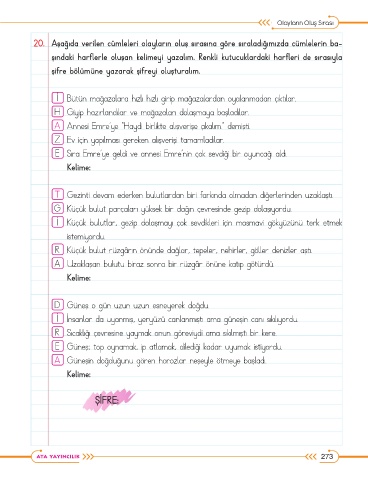 Olayların Oluş Sırası
20. Aşağıda verilen cümleleri olayların oluş sırasına göre sıraladığımızda cümlelerin ba-
şındaki harflerle oluşan kelimeyi yazalım. Renkli kutucuklardaki harfleri de sırasıyla
şifre bölümüne yazarak şifreyi oluşturalım.
İ Bütün mağazalara hızlı hızlı girip mağazalardan oyalanmadan çıktılar.
H Giyip hazırlandılar ve mağazaları dolaşmaya başladılar.
A Annesi Emre'ye "Haydi birlikte alışverişe çıkalım." demişti.
Z Ev için yapılması gereken alışverişi tamamladılar.
E Sıra Emre'ye geldi ve annesi Emre'nin çok sevdiği bir oyuncağı aldı.
Kelime:
T Gezinti devam ederken bulutlardan biri farkında olmadan diğerlerinden uzaklaştı.
G Küçük bulut parçaları yüksek bir dağın çevresinde gezip dolaşıyordu.
I Küçük bulutlar, gezip dolaşmayı çok sevdikleri için masmavi gökyüzünü terk etmek
istemiyordu.
R Küçük bulut rüzgârın önünde dağlar, tepeler, nehirler, göller denizler aştı.
A Uzaklaşan bulutu biraz sonra bir rüzgâr önüne katıp götürdü.
Kelime:
D Güneş o gün uzun uzun esneyerek doğdu.
İ İnsanlar da uyanmış, yeryüzü canlanmıştı ama güneşin canı sıkılıyordu.
R Sıcaklığı çevresine yaymak onun göreviydi ama sıkılmıştı bir kere.
E Güneş; top oynamak, ip atlamak, dilediği kadar uyumak istiyordu.
A Güneşin doğduğunu gören horozlar neşeyle ötmeye başladı.
Kelime:
ŞİFRE:
ATA YAYINCILIK
273